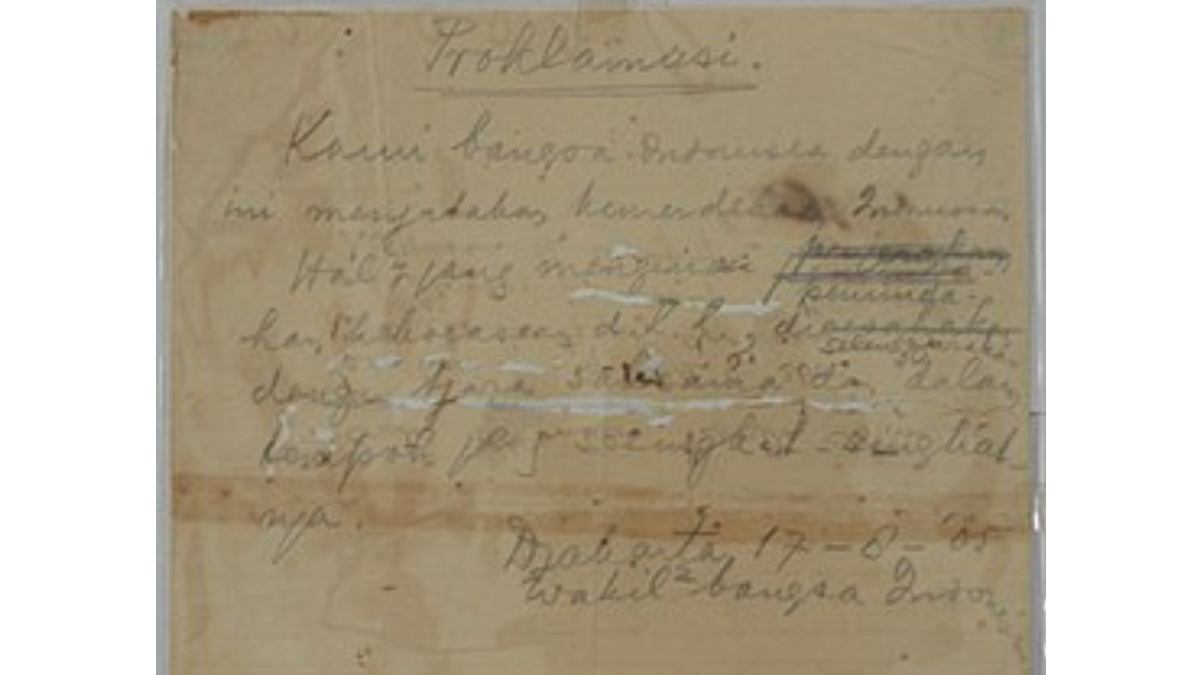 Proklamasi.
Kami bangsa Indonesia dengan
ini menjatakan kemerdekaan Indonesia
Hal² jang mengenai
peminda-
han kekoeasaan d.l.l.,
diselenggarakan
dengan tjara saksama dan dalam
tempoh jang sesingkat-singkat
nja.
Djakarta, 17 - 8 - '05
Wakil² bangsa Indonesia